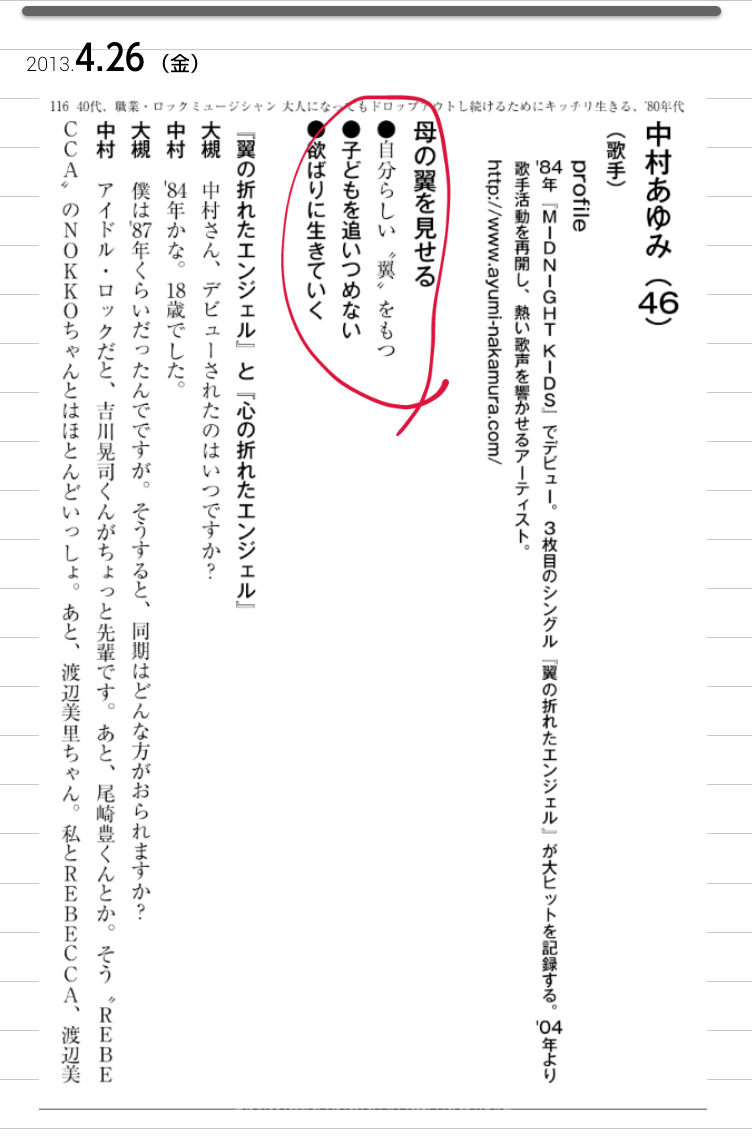 2013.4.26（金）
116 40代、職業・ロックミュージシャン 大人になってもドロップアウトし続けるためにキッチリ生きる、'80年代
中村あゆみ（46）
（歌手）
profile
'84年『MIDNIGHT KIDS』でデビュー。3枚目のシングル『翼の折れたエンジェル』が大ヒットを記録する。'04年より
歌手活動を再開し、熱い歌声を響かせるアーティスト。
http://www.ayumi-nakamura.com/
母の翼を見せる
●自分らしい〝翼〟をもつ
●子どもを追いつめない
●欲ばりに生きていく
『翼の折れたエンジェル』と『心の折れたエンジェル』
大槻　中村さん、デビューされたのはいつですか？
中村　'84年かな。18歳でした。
大槻　僕は'87年くらいだったんでですが。そうすると、同期はどんな方がおられますか？
中村　アイドル・ロックだと、吉川晃司くんがちょっと先輩です。あと、尾崎豊くんとか。そう〝REBE
CCA〟のNOKKOちゃんとはほとんどいっしょ。あと、渡辺美里ちゃん。私とREBECCA、渡辺美